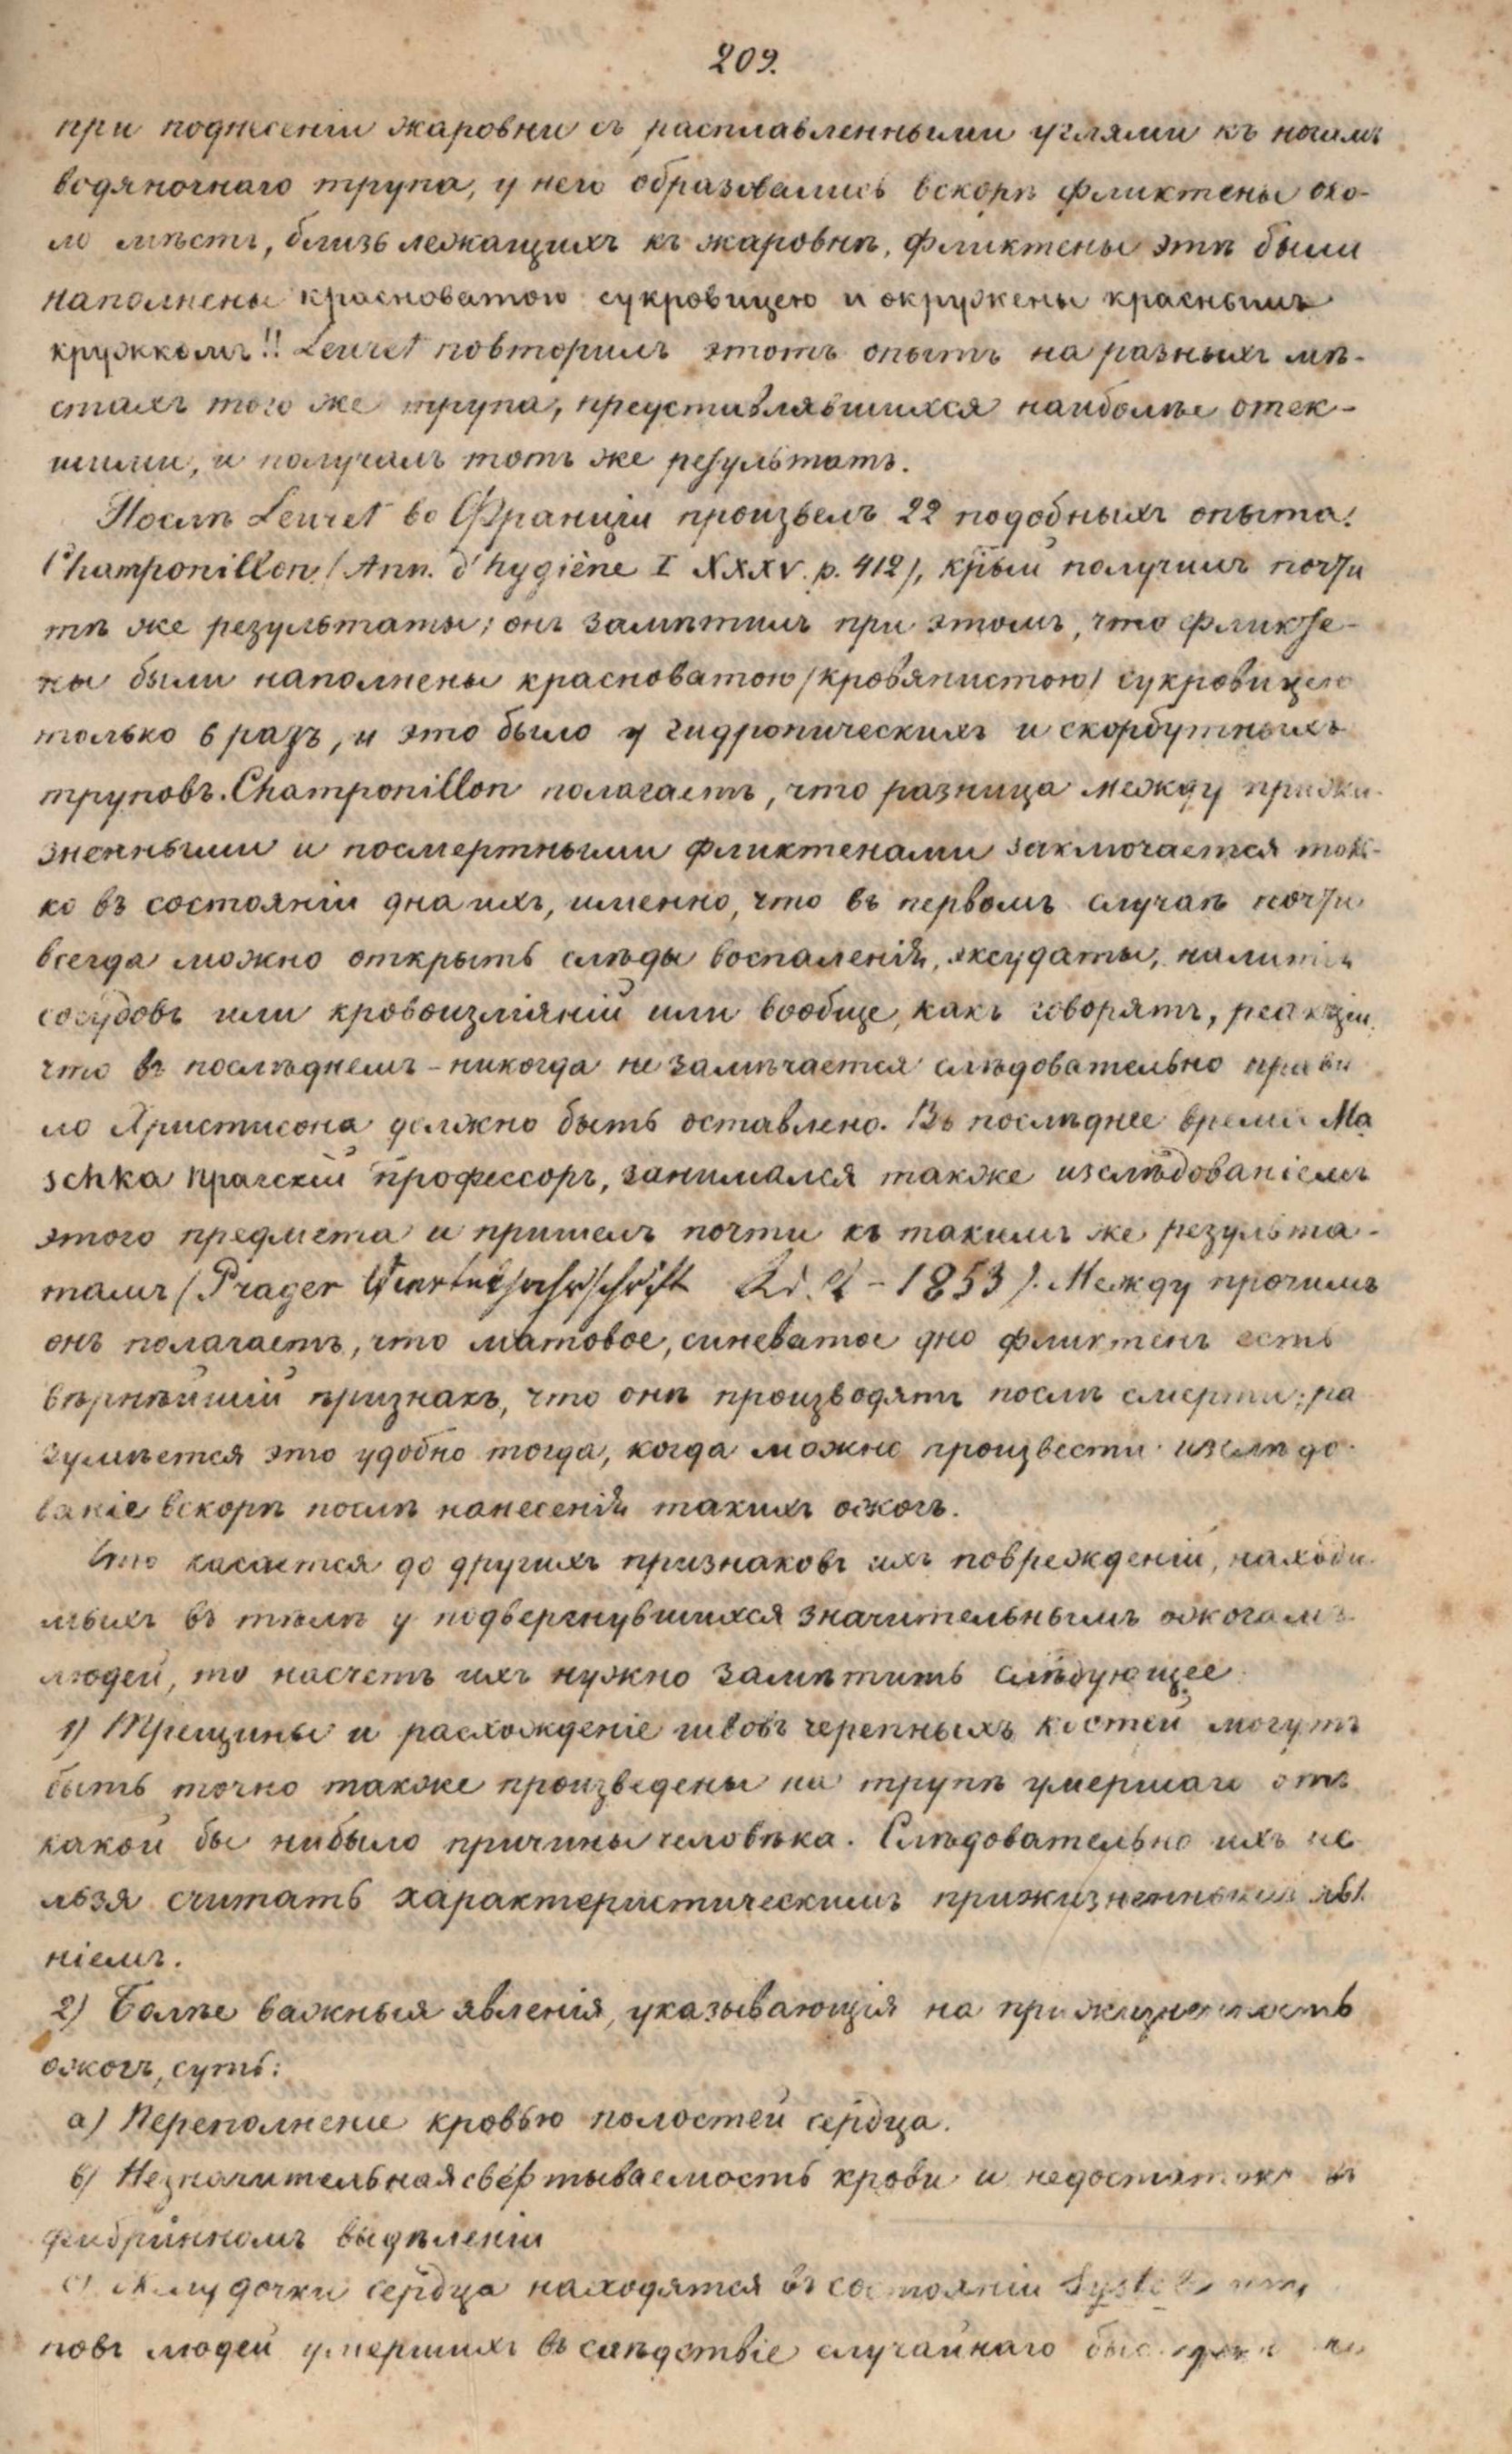 209.
при поднесеніи жаровни съ расплавленными углями къ ногамъ
водяночнаго трупа, у него образовались вскорѣ фликтены око-
ло мѣстъ, близь лежащихъ къ жаровнѣ. Фликтены этѣ были
наполнены красноватою сукровицею и окружены краснымъ
кружкомъ!! Leuret повторилъ этотъ опытъ на разныхъ мѣ-
стахъ того же трупа, представлявшихся наиболѣе отек-
шими, и получалъ тотъ же результатъ.
Послѣ Leuret во Франціи произвелъ 22 подобныхъ опыта:
Champonillon (Ann. d'hygiène I XXXV. p. 412), крый получилъ почти
тѣ же результаты; онъ замѣтилъ при этомъ, что фликте-
ны были наполнены красноватою (кровянистою) сукровицею
только 6 разъ, и это было у гидропическихъ и скорбутныхъ
труповъ. Champonillon полагаетъ, что разница между прижи-
зненными и посмертными фликтенами заключается толь-
ко въ состояніи дна ихъ, именно, что въ первомъ случаѣ почти
всегда можно открыть слѣды воспаленія, эксудаты, налитія
сосудовъ или кровоизліяній или вообще, какъ говорятъ, реакціи,
что въ послѣднемъ - никогда не замѣчается слѣдовательно прави
ло Христисона должно быть оставлено. Въ послѣднее время Ma
schka прагскій профессоръ, занимался также изслѣдованіемъ
этого предмета и пришелъ почти къ такимъ же результа-
тамъ (Prager Vierteljahrschrift - 1853). Между прочимъ
онъ полагаетъ, что матовое, синеватое дно фликтенъ есть
вѣрнѣйшій признакъ, что онѣ производятъ послѣ смерти; ра
зумѣется это удобно тогда, когда можно произвести изслѣдо-
ваніе вскорѣ послѣ нанесенія такихъ ожогъ.
Что касается до другихъ признаковъ ихъ поврежденій, находи-
мыхъ въ тѣлѣ у подвергнувшихся значительнымъ ожогамъ
людей, то насчетъ ихъ нужно замѣтить слѣдующее
1) Трещины и расхожденіе швовъ черепныхъ костей могутъ
быть точно также произведены на трупѣ умершаго отъ
какой бы нибыло причины человѣка. Слѣдовательно ихъ не
льзя считать характеристическимъ прижизненнымъ явл
ніемъ.
2) Болѣе важныя явленія, указывающія на прижизненность
ожогъ, суть:
а) Переполненіе кровью полостей сердца.
б) Незначительная свёртываемость крови и недостатокъ въ
фибринномъ выдѣленіи
с) Желудочки сердца находятся въ состояніи
повъ людей умершихъ въ слѣдствіе случайнаго